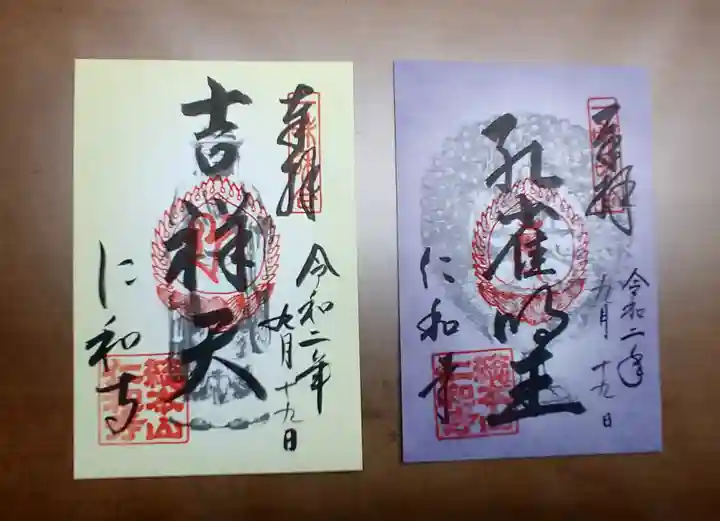 奉拝
吉祥天
令和二年
九月十九日
仁和寺
総本山
仁和寺
奉拝
孔雀明王
令和二年
九月十九日
仁和寺
総本山
仁和寺